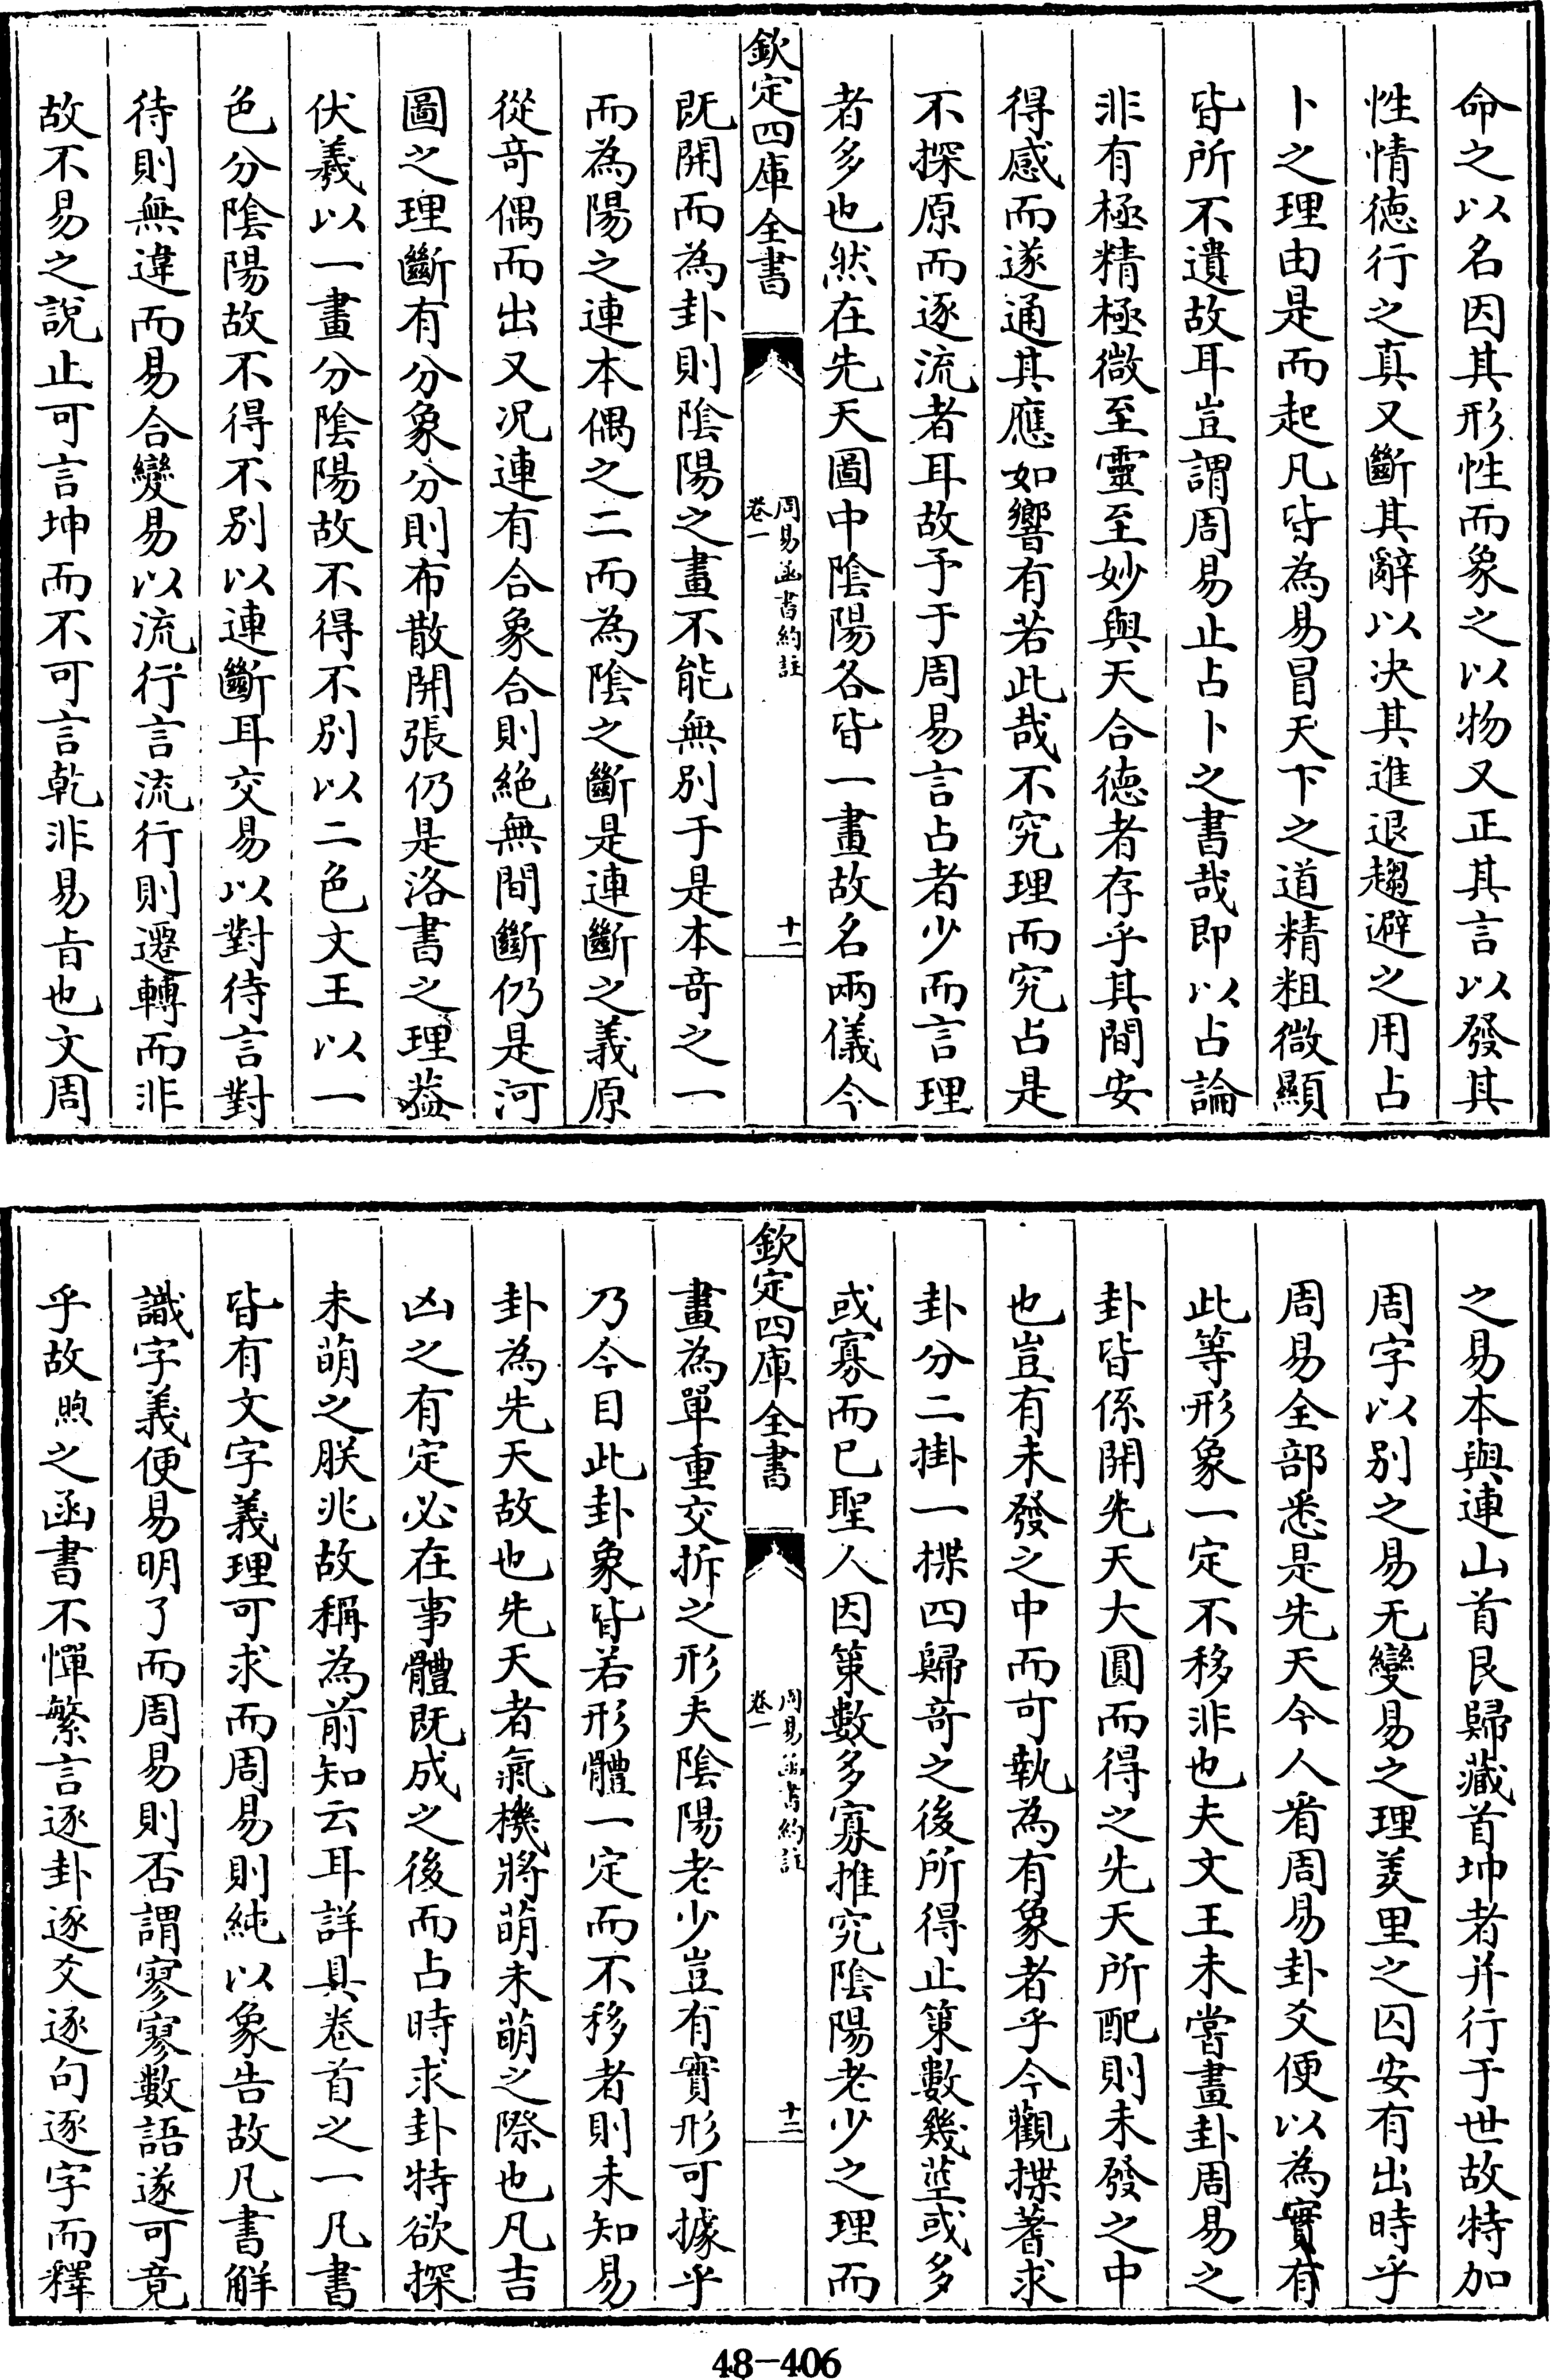 命之以名因其形性而象之以物又正其言以發其
性情德行之真又斷其辭以决其進退趨避之用占
卜之理由是而起凡皆為易冒天下之道精粗微顯
皆所不遺故耳豈謂周易止占卜之書哉即以占論
非有極精極微至靈至妙與天合德者存乎其間安
得感而遂通其應如響有若此哉不究理而究占是
不探原而逐流者耳故予于周易言占者少而言理
者多也然在先天圖中陰陽各皆一畫故名兩儀今
欽定四庫全書
周易函書約註
卷一
十一
既開而為卦則陰陽之畫不能無別于是本奇之一
而為陽之連本偶之二而為陰之斷是連斷之義原
從奇偶而出又况連有合象合則絶無間斷仍是河
圖之理斷有分象分則布散開張仍是洛書之理葢
伏羲以一畫分陰陽故不得不別以二色文王以一
色分陰陽故不得不別以連斷耳交易以對待言對
待則無違而易合變易以流行言流行則遷轉而非
故不易之說止可言坤而不可言乾非易㫖也文周
之易本與連山首艮歸藏首坤者并行于世故特加
周字以别之易无變易之理羑里之囚安有出時乎
周易全部悉是先天今人㸔周易卦爻便以為實有
此等形象一定不移非也夫文王未嘗畫卦周易之
卦皆係開先天大圓而得之先天所配則未發之中
也豈有未發之中而可執為有象者乎今觀揲蓍求
卦分二掛一揲四歸奇之後所得止策數幾莖或多
或寡而已聖人因策數多寡推究陰陽老少之理而
欽定四庫全書
周易函書約註
卷一
十二
畫為單重交拆之形夫陰陽老少豈有實形可據乎
乃今目此卦象皆若形體一定而不移者則未知易
卦為先天故也先天者氣機將萌未萌之際也凡吉
凶之有定必在事體既成之後而占時求卦特欲探
未萌之朕兆故稱為前知云耳詳具卷首之一凡書
皆有文字義理可求而周易則純以象告故凡書解
識字義便易明了而周易則否謂寥寥數語遂可竟
乎故煦之函書不憚繁言逐卦逐爻逐句逐字而釋
48-406